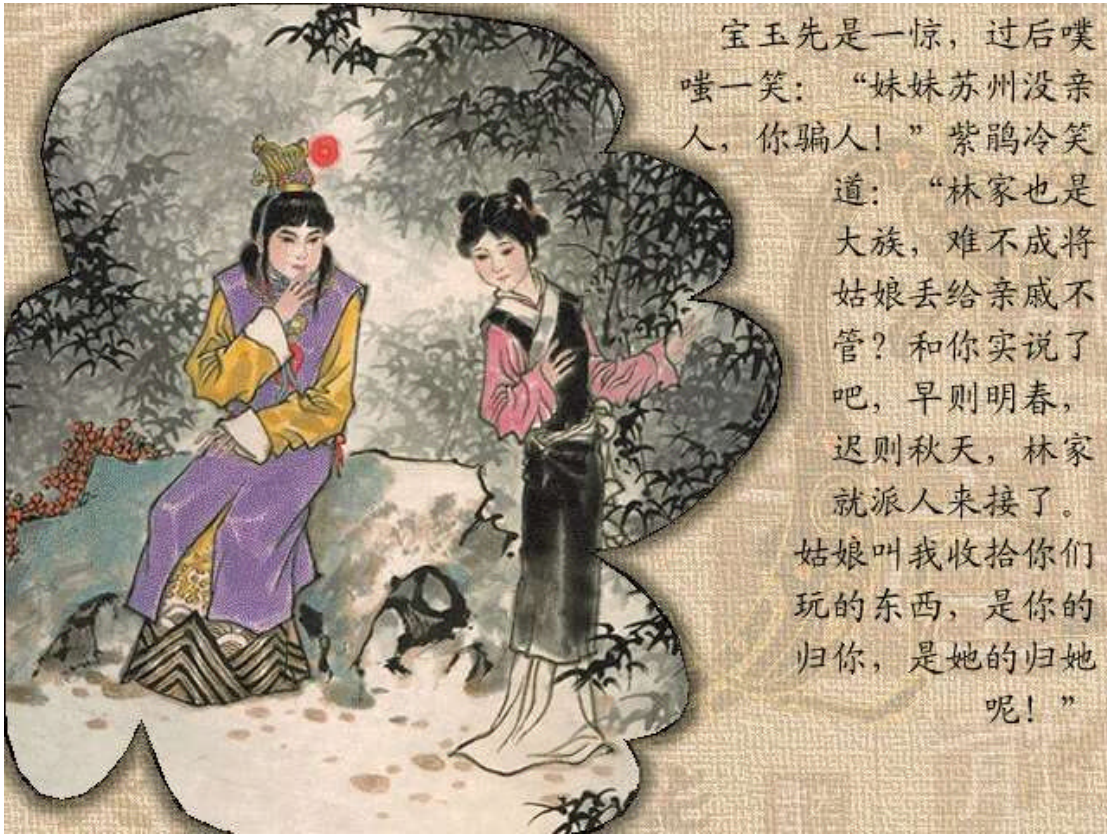 宝玉先是一惊，过后噗
嗤一笑：“妹妹苏州没亲
人，你骗人！”紫鹃冷笑
道：“林家也是
大族，难不成将
姑娘丢给亲戚不
管？和你实说了
吧，早则明春，
迟则秋天，林家
就派人来接了。
姑娘叫我收拾你们
玩的东西，是你的
归你，是她的归她
呢！”